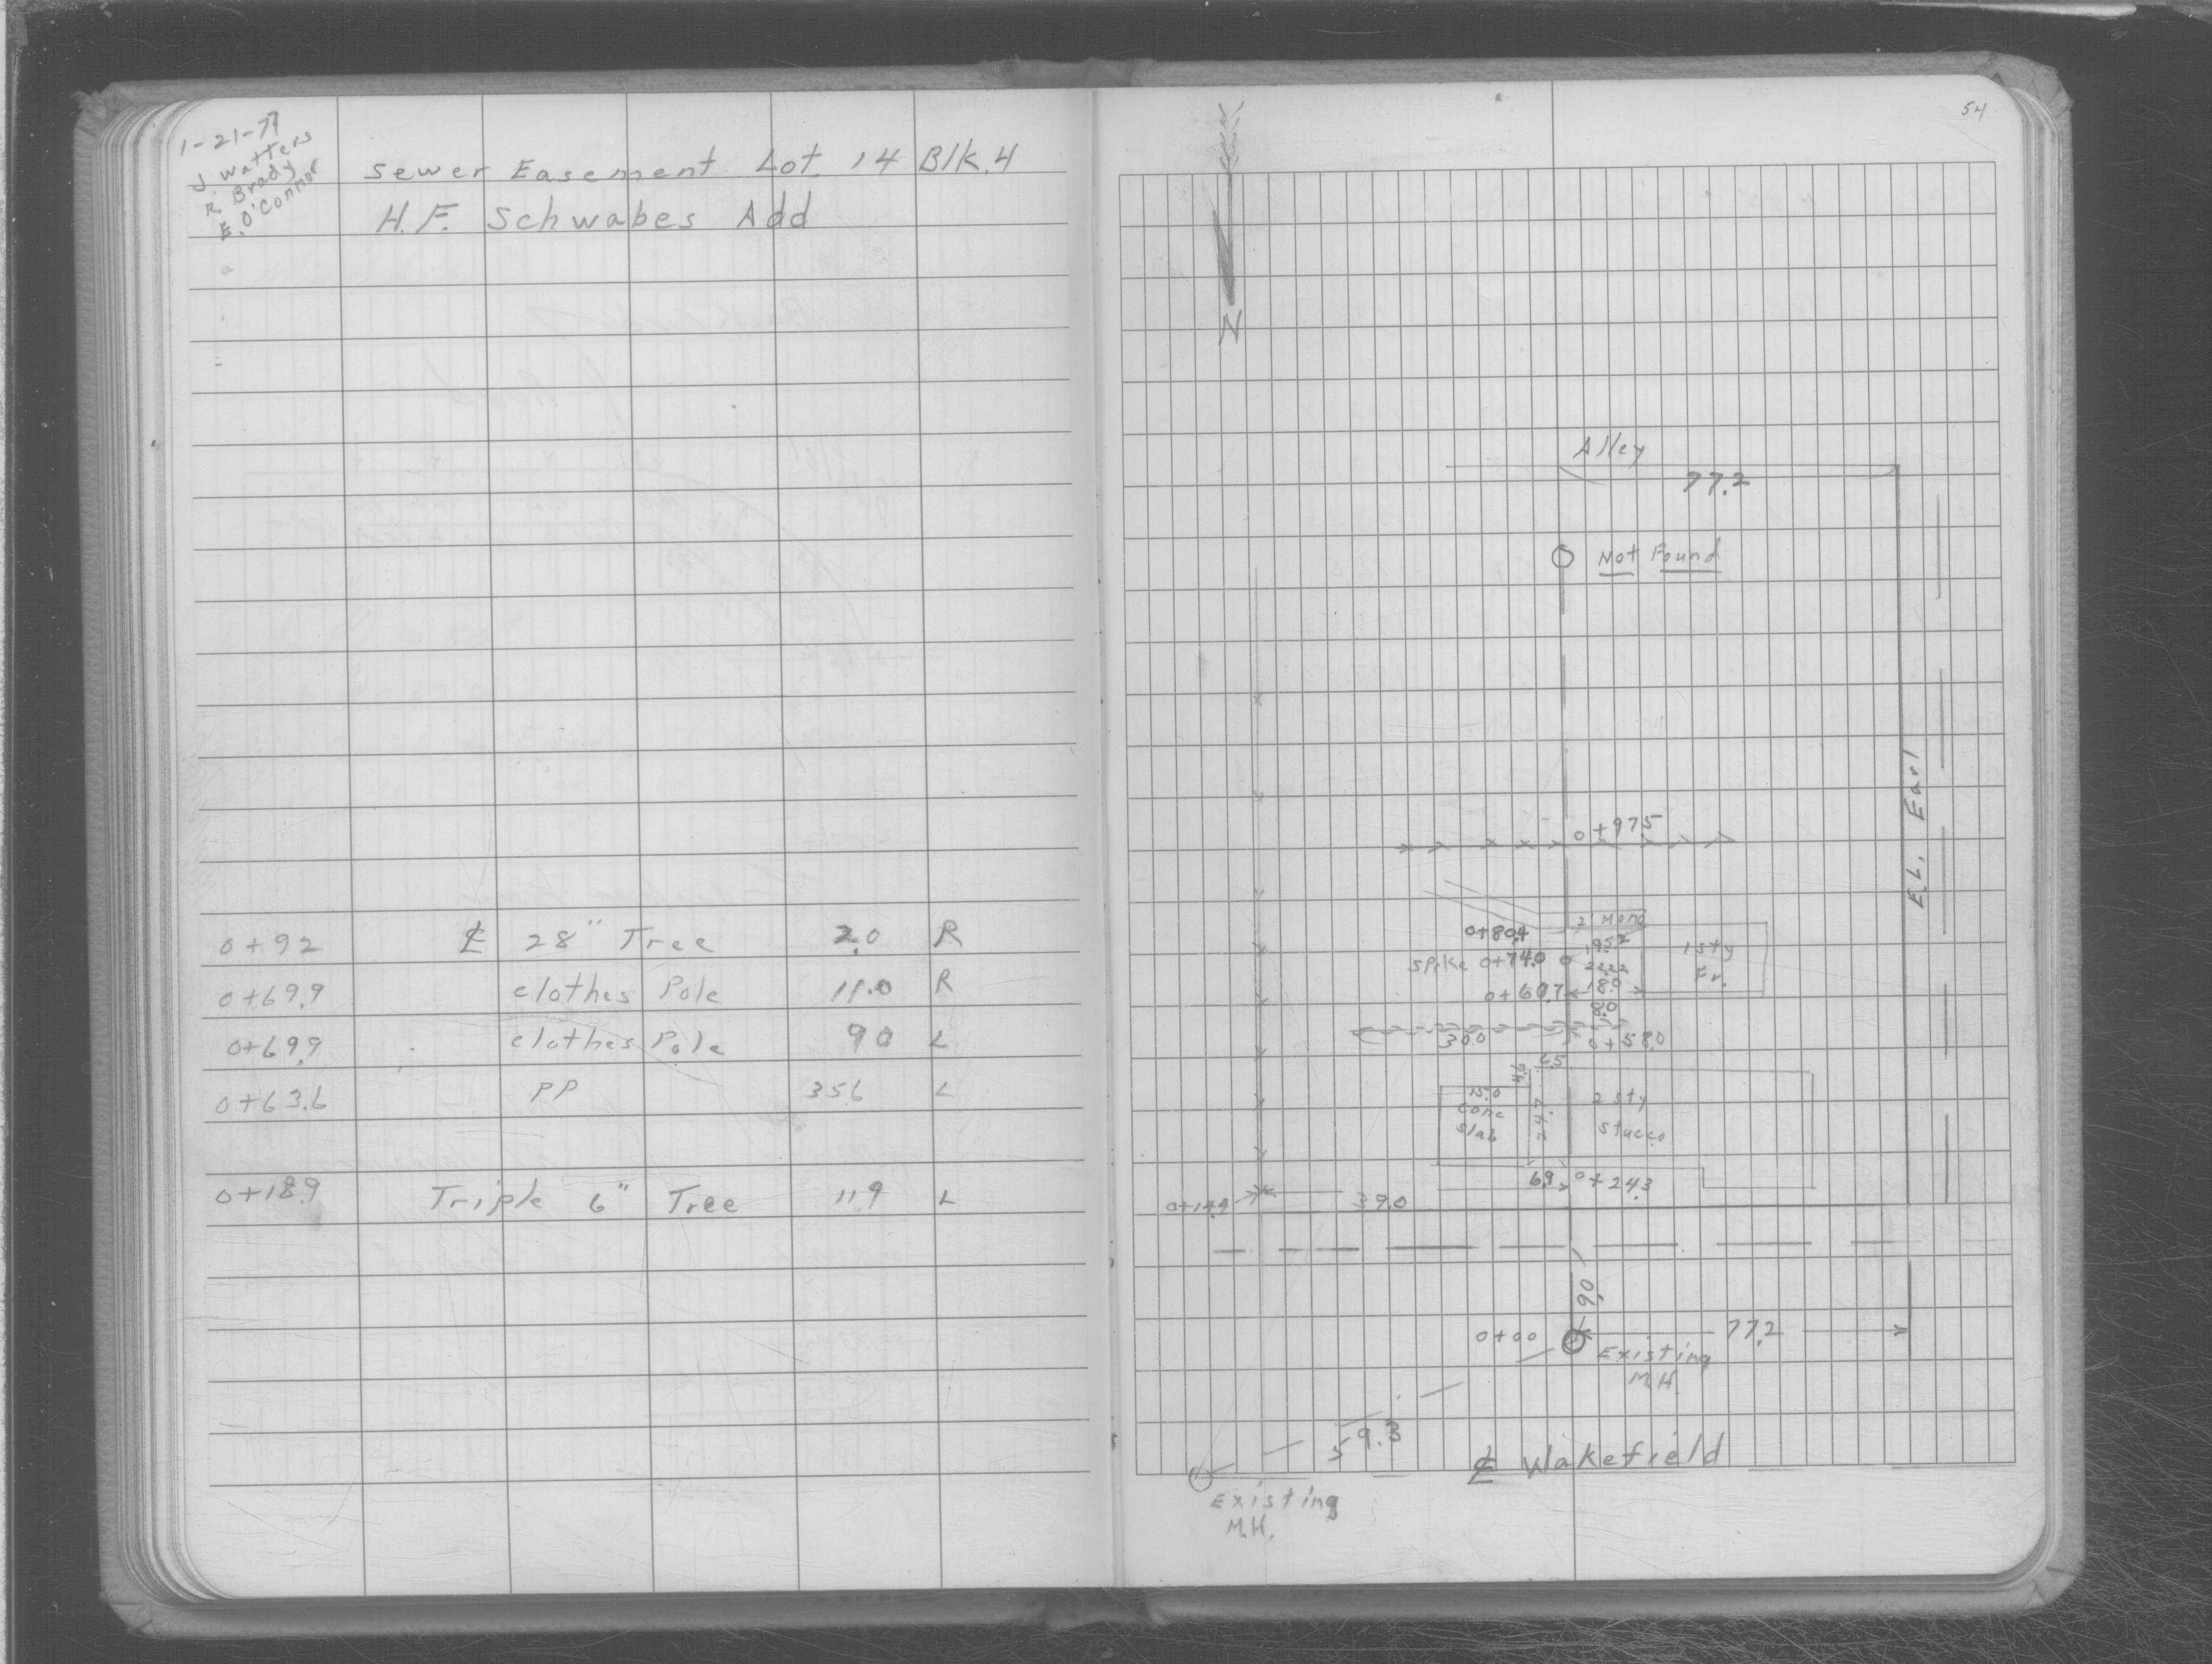 1-21-77
J. Watters
R. Brady
E. O'Connor
Sewer Easement Lot 14 Blk. 4
H.F. Schwabes Add
0+92 ℄ 28" Tree 2.0 R
0+69.9 clothes Pole 11.0 R
0+69.9 clothes Pole 9.0 L
0+63.6 PP 35.6 L
0+18.9 Triple 6" Tree 11.9 L
54
N
Alley
77.2
Not Found
EL. Earl
0+97.5
0+80.4
Spike 0+74.0
1 sty
Fr.
0+60.7
18.0
8.0
30.0
0+58.0
6.5
15.0
Conc
Slab
2 sty
Stucco
6.9 0+24.3
0+14.9
39.0
90
0+00
77.2
Existing
M.H.
59.3
℄ Wakefield
Existing
M.H.